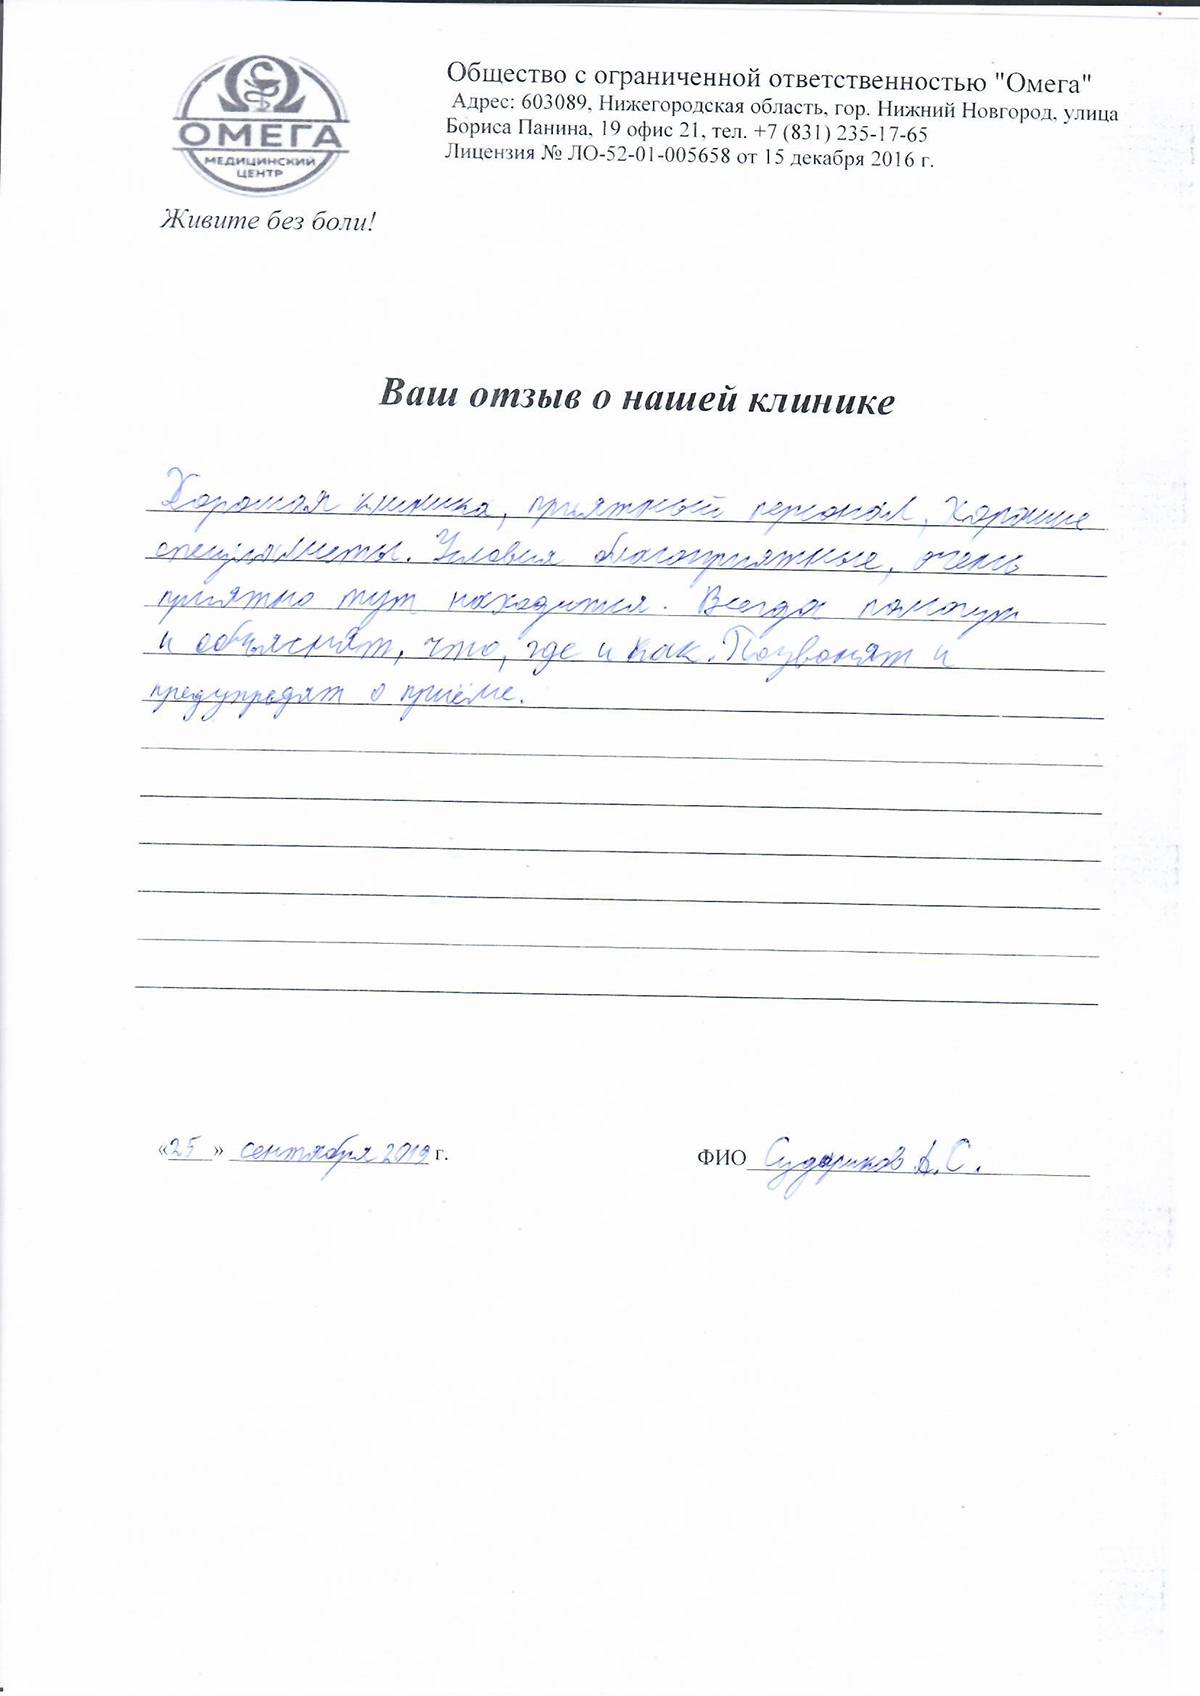 ОМЕГА
МЕДИЦИНСКИЙ
ЦЕНТР
Живите без боли!
Общество с ограниченной ответственностью "Омега"
Адрес: 603089, Нижегородская область, гор. Нижний Новгород, улица
Бориса Панина, 19 офис 21, тел. +7 (831) 235-17-65
Лицензия № ЛО-52-01-005658 от 15 декабря 2016 г.
Ваш отзыв о нашей клинике
Хорошая клиника, приятный персонал, Хорошие
специалисты. Условия благоприятные, очень
приятно тут находится. Всегда помогут
и объяснят, что, где и как. Позвонят и
предупредят о приёме.
«25» сентября 2019 г.
ФИО Судариков А.С.